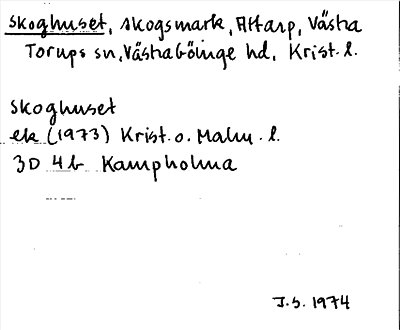 Skoghuset, skogsmark, Attarp, Västra
Torups sn, Västra Göinge hd, Krist. l.
Skoghuset
ek (1973) Krist. o. Malm. l.
3D 4b Kampholma
J.S. 1974